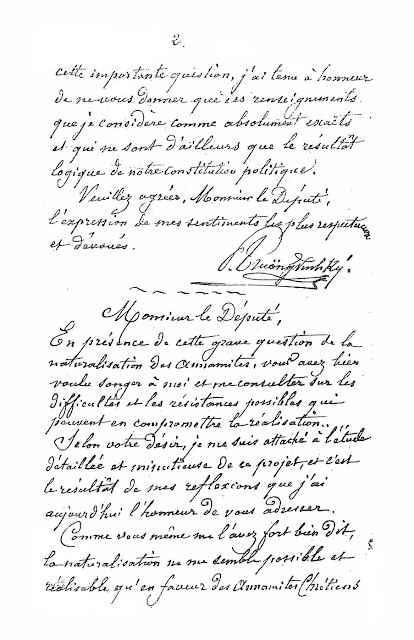 2.
cette importante question, j'ai tenu à honneur
de ne vous donner que des renseignements
que je considère comme absolument exacts
et qui ne sont d'ailleurs que le résultat
logique de notre constitution politique.
Veuillez agréer, Monsieur le Député,
l'expression de mes sentiments les plus respectueux
et dévoués.
P. Truongvinhký.
Monsieur le Député,
En présence de cette grave question de la
naturalisation des Annamites, vous avez bien
voulu songer à moi et me consulter sur les
difficultés et les résistances possibles qui
peuvent en compromettre la réalisation.
Selon votre désir, je me suis attaché à l'étude
détaillée et minutieuse de ce projet, et c'est
le résultat de mes reflexions que j'ai
aujourd'hui l'honneur de vous adresser.
Comme vous même me l'avez fort bien dit,
la naturalisation ne me semble possible et
réalisable qu'en faveur des Annamites Chrétiens